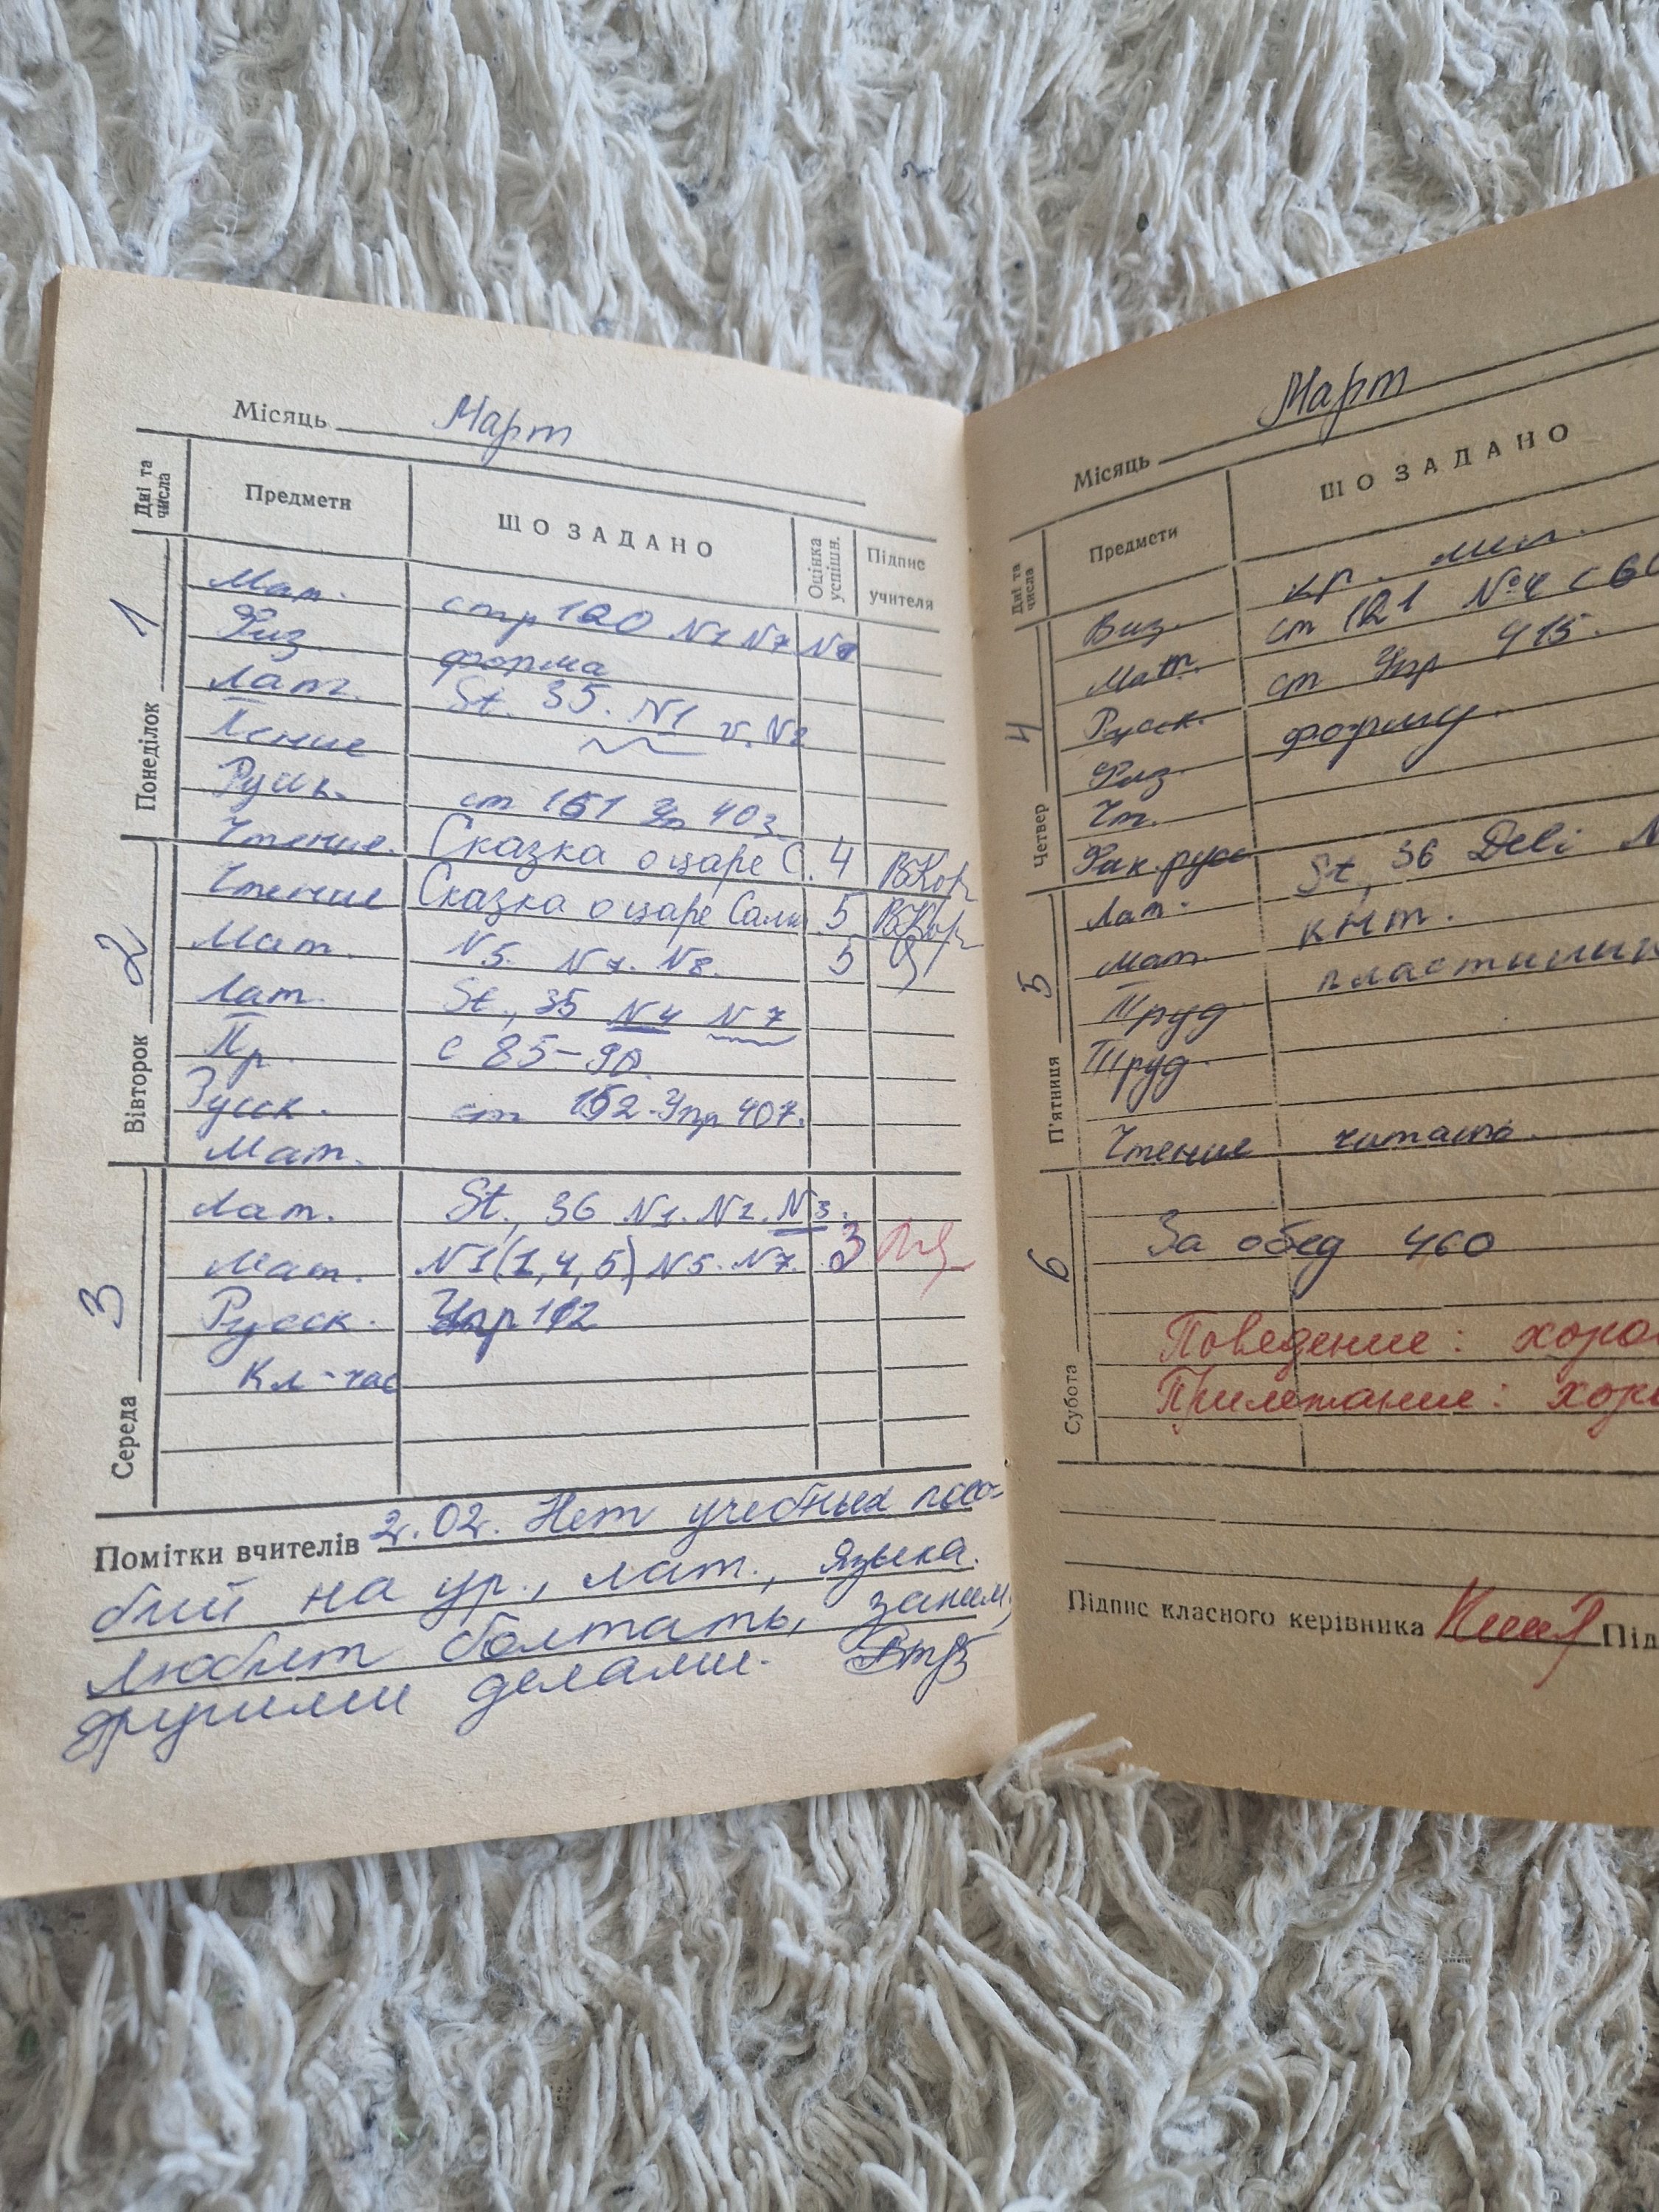 Місяць Март
Дні та числа Предмети ШО ЗАДАНО Оцінка успішн. Підпис учителя
Понеділок 1
Мат. стр 120 N1 N7 N8
Физ форма
Лат. St. 35. N1 N2
Пение
Русск. ст 151 403
Чтение. Сказка о царе С. 4 ВКор
Вівторок 2
Чтение Сказка о царе Салт 5 ВКор
Мат. N5. N7. N8. 5
Лат. St., 35 N4 N7
Пр. с 85-90.
Русск. ст 152. Упр 407.
Мат.
Середа 3
Лат. St., 36 N1. N2. N3.
Мат. N1(1,4,5) N5. N7. 3
Русск. Упр 112
Кл-час
Помітки вчителів 2.02. Нет учебных посо-
бий на ур., лат., языка.
Любит болтать, заним.
другими делами.
Місяць Март
Дні та числа Предмети ШО ЗАДАНО
Четвер 4
Виз. кр. мел.
Мат. ст 121 №4 с 60
Русск. ст Упр 415.
Физ. форму.
Чт.
Фак. русс
П'ятниця 5
Лат. St, 36 Deli N
Мат. кнт.
Труд пластилин
Труд.
Чтение читать.
Субота 6
За обед 460
Поведение: хоро
Прилежание: хоро
Підпис класного керівника Під